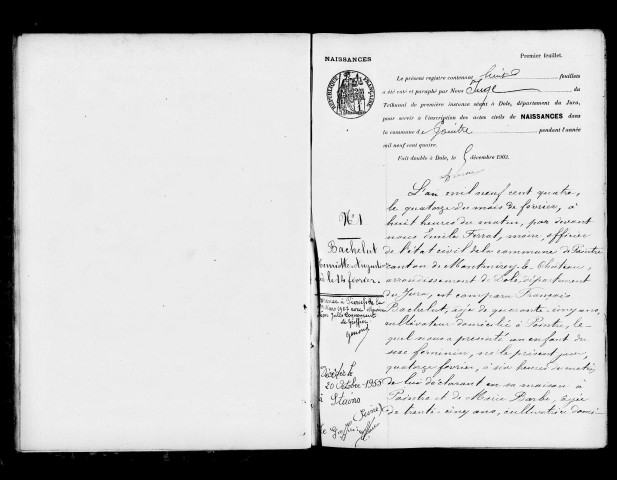 NAISSANCES
Premier feuillet.
RÉPUBLIQUE FRANÇAISE
Le présent registre contenant huit feuillets
a été coté et paraphé par Nous Juge du
Tribunal de première instance séant à Dole, département du Jura,
pour servir à l'inscription des actes civils de NAISSANCES dans
la commune de Peintre pendant l'année
mil neuf cent quatre.
Fait double à Dole, le décembre 1903.
N° 1
Bachelut
Henriette Augustine
le 14 février.
Décédée le
20 Octobre 1955
à Stains
(Seine)
Le Greffier
L'an mil neuf cent quatre,
le quatorze du mois de février, à
huit heures du matin, par devant
nous Emile Ferrot, maire, officier
de l'état civil de la commune de Peintre
canton de Montmirey-le-Château,
arrondissement de Dole, département
du Jura, est comparu François
Bachelut, âgé de quarante cinq ans,
cultivateur domicilié à Peintre, le-
quel nous a présenté un enfant du
sexe féminin, né le présent jour,
quatorze février, à six heures du matin,
de lui déclarant en sa maison à
Peintre et de Marie Barbe, âgée
de trente-cinq ans, cultivatrice domi-